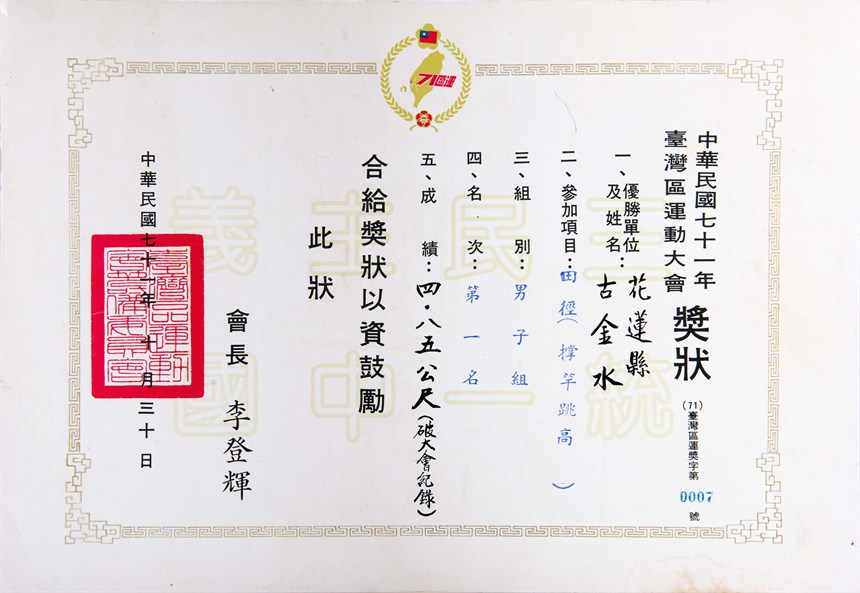 71區運
中華民國七十一年
臺灣區運動大會
獎狀
(71)臺灣區運獎字第0007號
一、優勝單位及姓名：花蓮縣
古金水
二、參加項目：田徑(撐竿跳高)
三、組別：男子組
四、名次：第一名
五、成績：四．八五公尺(破大會紀錄)
合給獎狀以資鼓勵
此狀
會長 李登輝
中華民國七十一年十月三十日
三民主義
統一中國